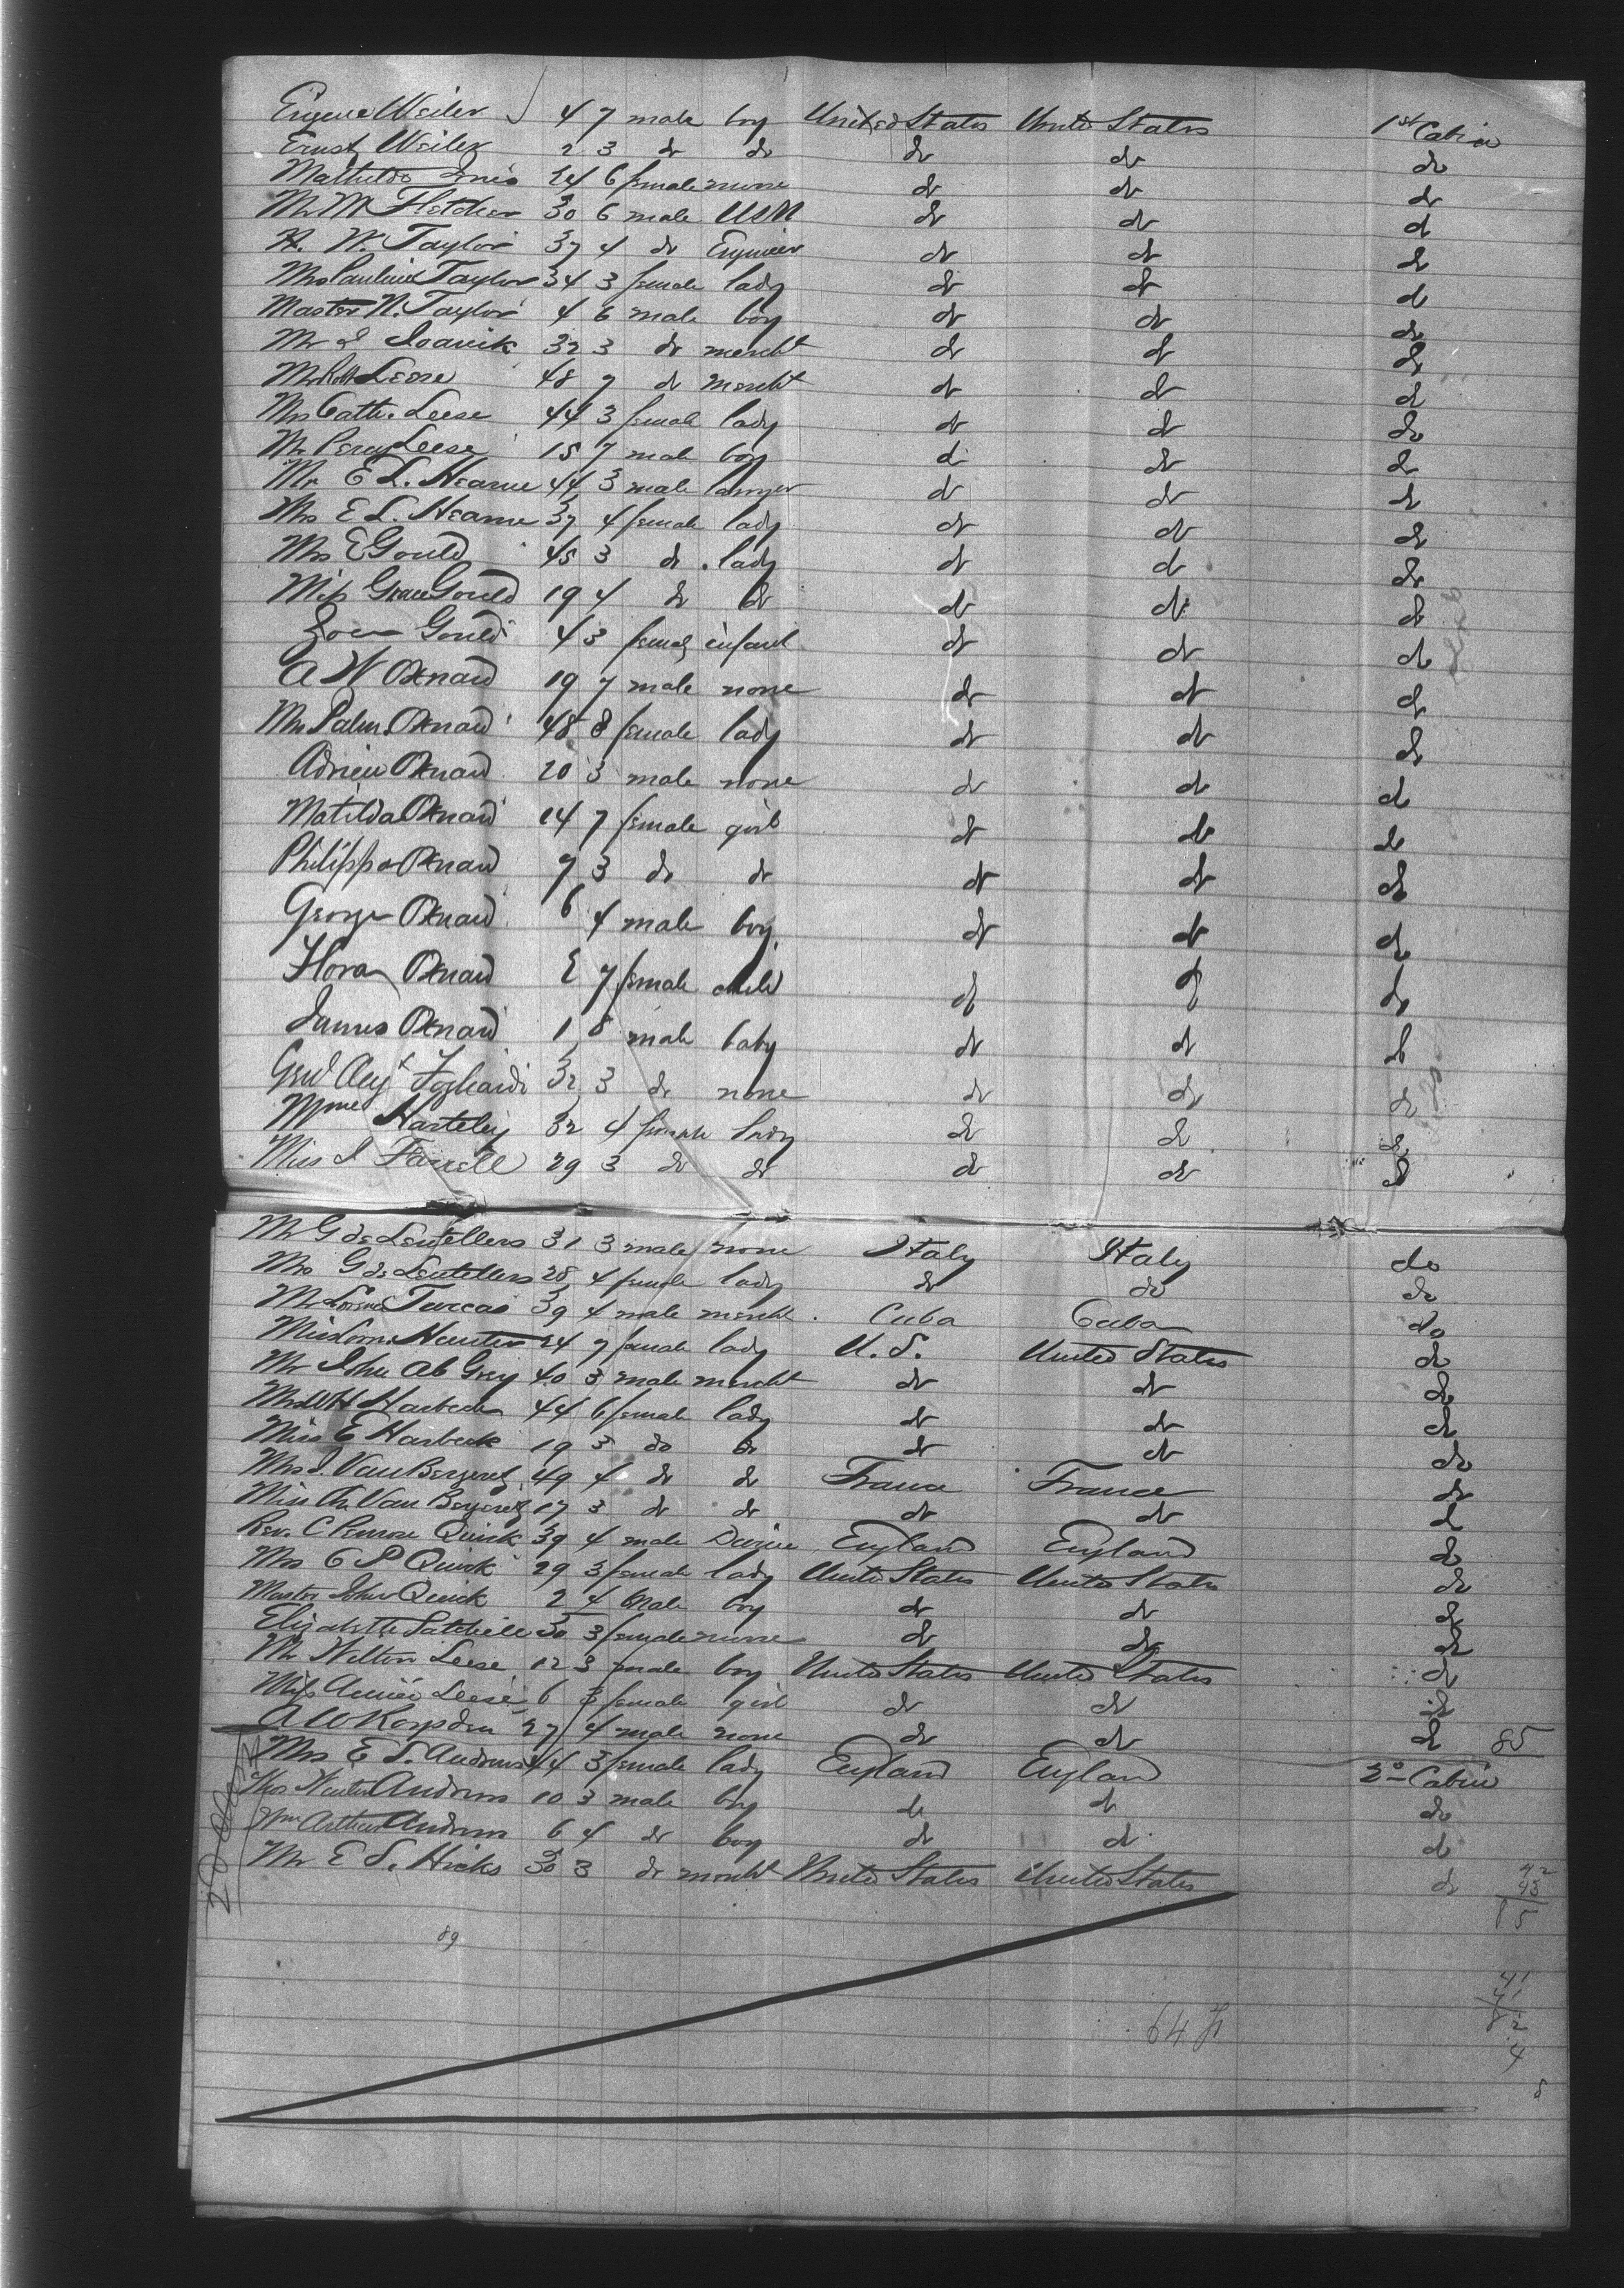 Eugene Weiler 4 7 male boy United States United States 1st Cabin
Ernst Weiler 2 3 do do do do do
Mathilde 24 6 female nurse do do do
Mr M Fletcher 30 6 male USN do do do
H. W. Taylor 37 4 do Engineer do do do
Mrs Pauline Taylor 34 3 female lady do do do
Master N. Taylor 4 6 male boy do do do
Mr I 32 3 do mercht do do do
Mr Robt Leese 48 7 do mercht do do do
Mrs Cathe. Leese 44 3 female lady do do do
Mr Percy Leese 15 7 male boy do do do
Mr E L. Hearne 44 3 male lawyer do do do
Mrs E L. Hearne 37 4 female lady do do do
Mrs E Gould 45 3 do lady do do do
Miss Grace Gould 19 4 do do do do do
Gould 4 3 female infant do do do
A W Oxnard 19 7 male none do do do
Mrs Oxnard 48 8 female lady do do do
Adrien Oxnard 20 3 male none do do do
Matilda Oxnard 14 7 female girl do do do
Philippa Oxnard 7 3 do do do do do
George Oxnard 6 4 male boy do do do
Flora Oxnard 2 7 female child do do do
James Oxnard 1 8 male baby do do do
Genl 32 3 do none do do do
Mme Harteley 32 4 female lady do do do
Miss I Farrell 29 3 do do do do do
Mr G de Lentellers 31 3 male none Italy Italy do
Mrs G de Lentellers 28 4 female lady do do do
Mr Turcas 39 4 male mercht Cuba Cuba do
Miss Hunter 24 7 female lady U.S. United States do
Mr John Grey 40 3 male mercht do do do
Mrs W H Harbeck 44 6 female lady do do do
Miss E Harbeck 19 3 do do do do do
Mrs I. Van Bergen 49 4 do do France France do
Miss Van Bergen 17 3 do do do do do
Rev. C Penrose Quirk 39 4 male Divine England England do
Mrs C P Quirk 29 3 female lady United States United States do
Master John Quirk 2 4 Male boy do do do
Elizabeth 30 3 female nurse do do do
Mr Wilton Leese 12 3 male boy United States United States do
Miss Annie Leese 6 3 female girl do do do
A W 27 4 male none do do do 85
Mrs E S. Andrews 44 3 female lady England England 2d Cabin
Hunter Andrews 10 3 male boy do do do
Wm Arthur Andrews 6 4 do boy do do do
Mr E S. Hicks 30 3 do mercht United States United States do
42
43
85
89
41
41
82
4
64
8